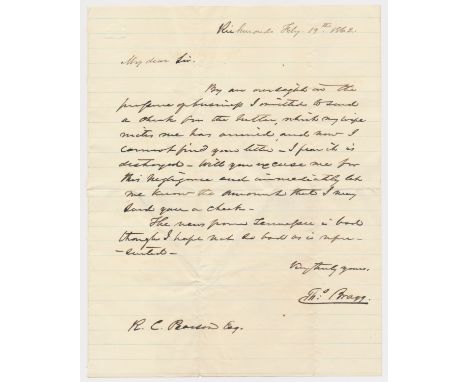 Richmond Feby. 19th 1862.
My dear Sir.
By an oversight in the
pressure of business I omitted to send
a check for the butter, which my wife
writes me has arrived and now I
cannot find your letter - I fear it is
destroyed - Will you excuse me for
this negligence and immediately let
me know the amount that I may
send you a check -
The news from Tennessee is bad
though I hope not so bad as is repre-
-sented -
Very truly yours,
Tho. Bragg.
R. C. Pearson Esq.